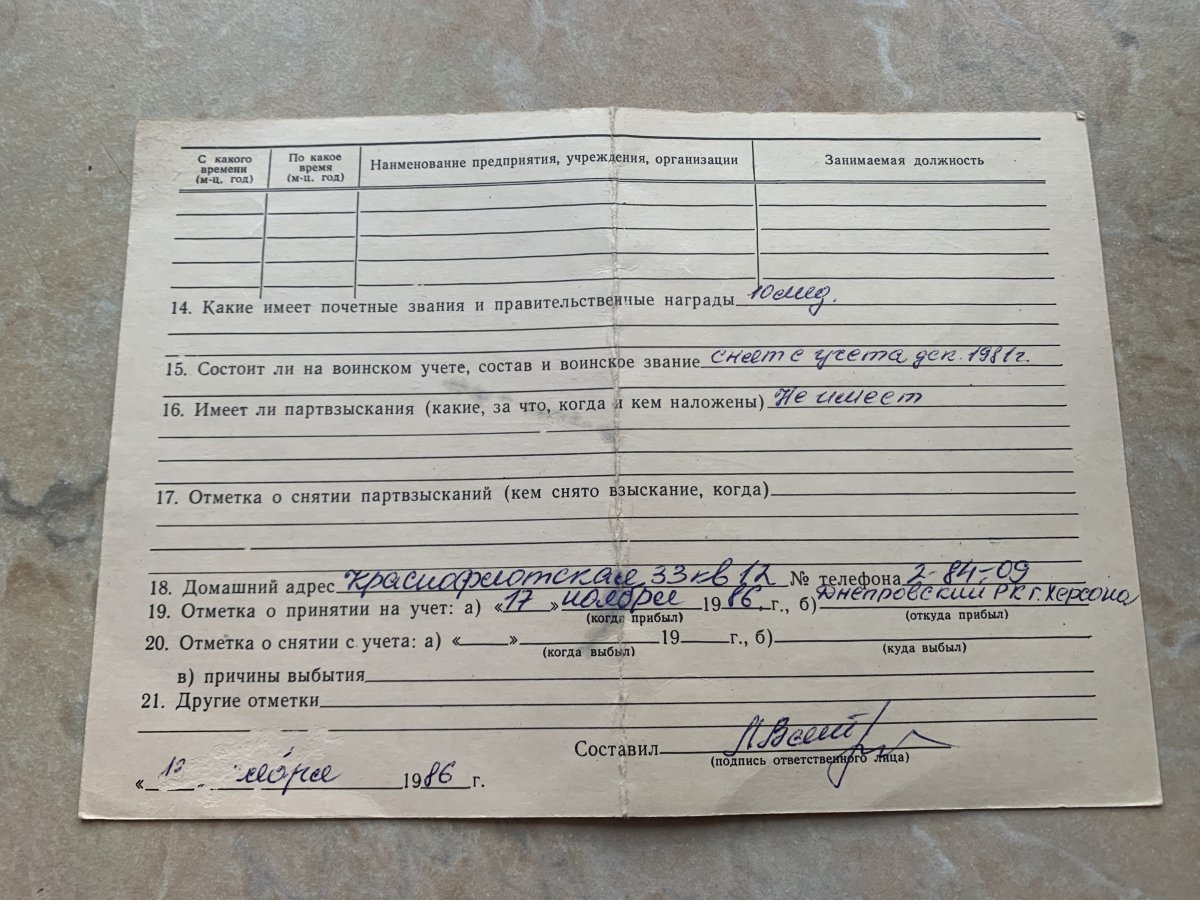 С какого времени (м-ц. год) По какое время (м-ц. год) Наименование предприятия, учреждения, организации Занимаемая должность
14. Какие имеет почетные звания и правительственные награды 10 мед.
15. Состоит ли на воинском учете, состав и воинское звание снят с учета дек. 1981г.
16. Имеет ли партвзыскания (какие, за что, когда и кем наложены) Не имеет
17. Отметка о снятии партвзысканий (кем снято взыскание, когда)
18. Домашний адрес Краснофлотская 33 кв 12 № телефона 2-84-09
19. Отметка о принятии на учет: а) «17» ноября 1986 г., б) Днепровский РК г. Херсона
(когда прибыл) (откуда прибыл)
20. Отметка о снятии с учета: а) « » 19 г., б)
(когда выбыл) (куда выбыл)
в) причины выбытия
21. Другие отметки
Составил
(подпись ответственного лица)
« ноября 1986 г.